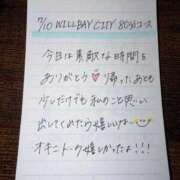 7/10 WILLBAY CITY 80分コース
今日は素敵な時間を
ありがとう 帰ったあとも
少しだけでも私のこと思い
出してくれたら嬉しいな
オキニトーク嬉しかったよ!!!